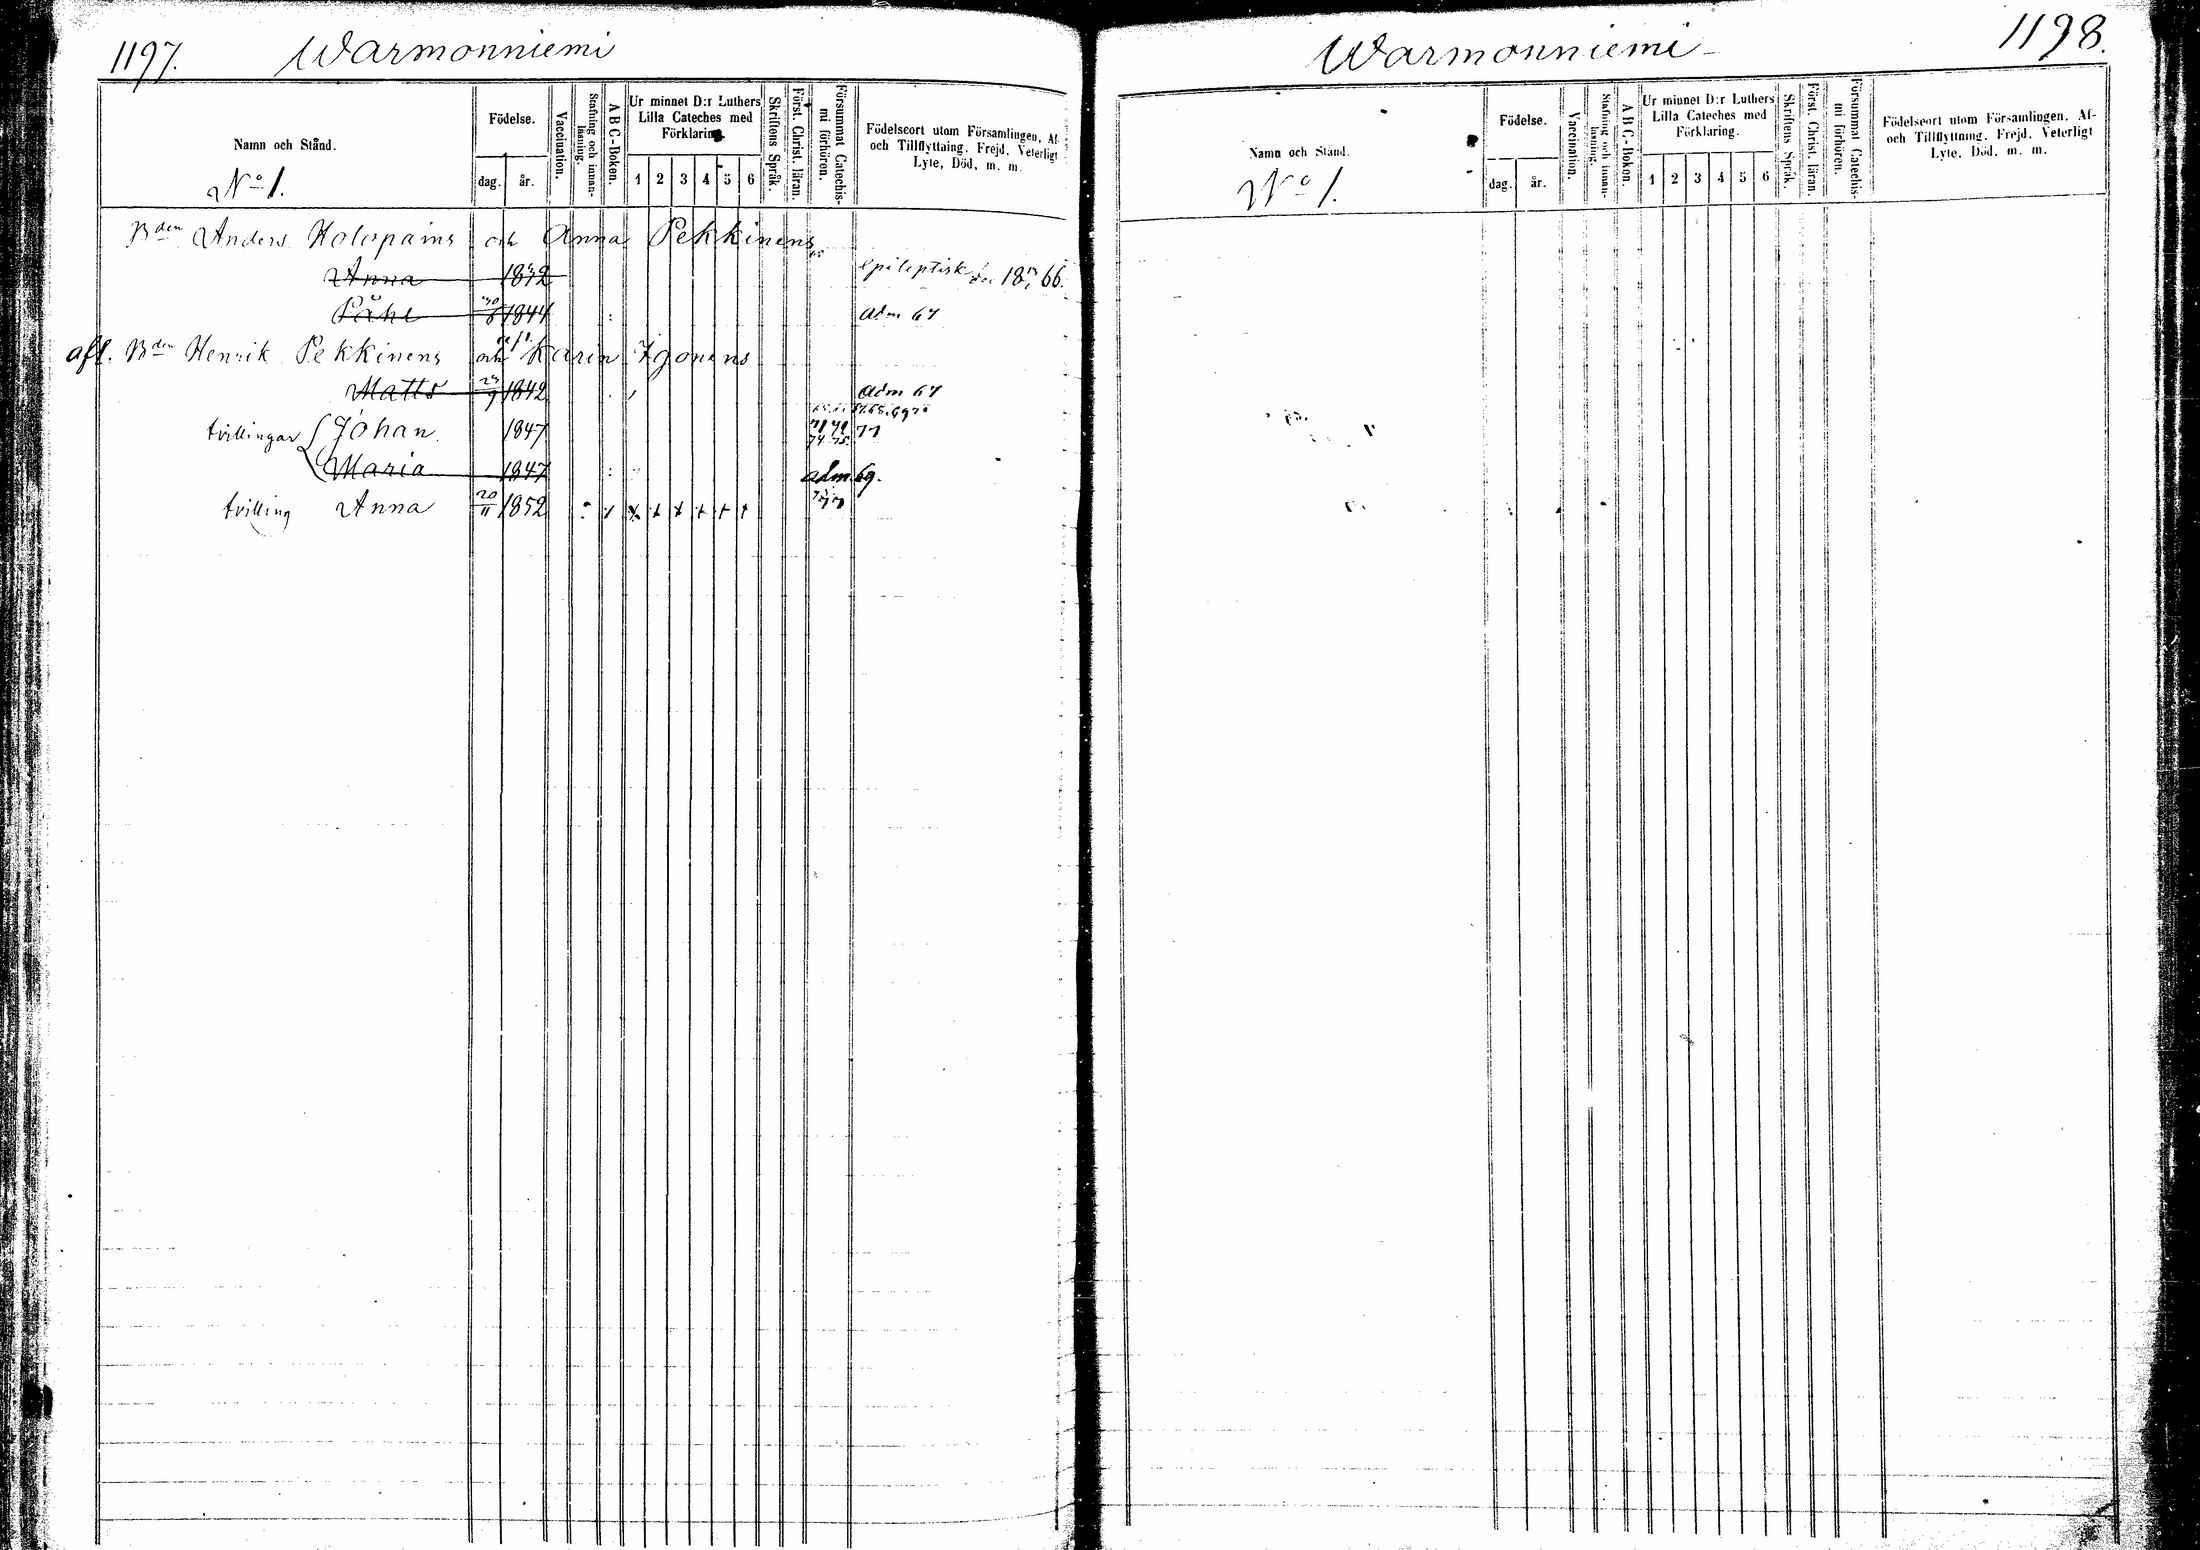 1197. Warmonniemi
Namn och Stånd.
No 1.
Födelse.
dag.
år.
Vaccination.
Stafning och innan-
läsning.
A B C-Boken.
Ur minnet D:r Luthers
Lilla Cateches med
Förklaring.
1 2 3 4 5 6
Skriftens Språk.
Först. Christ. läran.
Försummat Catechis-
mi förhören.
Födelseort utom Församlingen, Af-
och Tillflyttning, Frejd, Veterligt
Lyte, Död, m. m.
Bden Anders Holopains och Anna Pekkinens
Anna 1832 epileptisk 18 66.
Påhl 1844 adm 67
afl. Bden Henrik Pekkinens och Karin Igonens
Matts 1842 adm 67
tvillingar Johan 1847 77
Maria 1847 adm 69.
tvilling Anna 20/11 1852 + + + + + +
Warmonniemi 1198.
Namn och Stånd.
No 1.
Födelse.
dag.
år.
Vaccination.
Stafning och innan-
läsning.
A B C-Boken.
Ur minnet D:r Luthers
Lilla Cateches med
Förklaring.
1 2 3 4 5 6
Skriftens Språk.
Först. Christ. läran.
Försummat Catechis-
mi förhören.
Födelseort utom Församlingen, Af-
och Tillflyttning, Frejd, Veterligt
Lyte, Död, m. m.